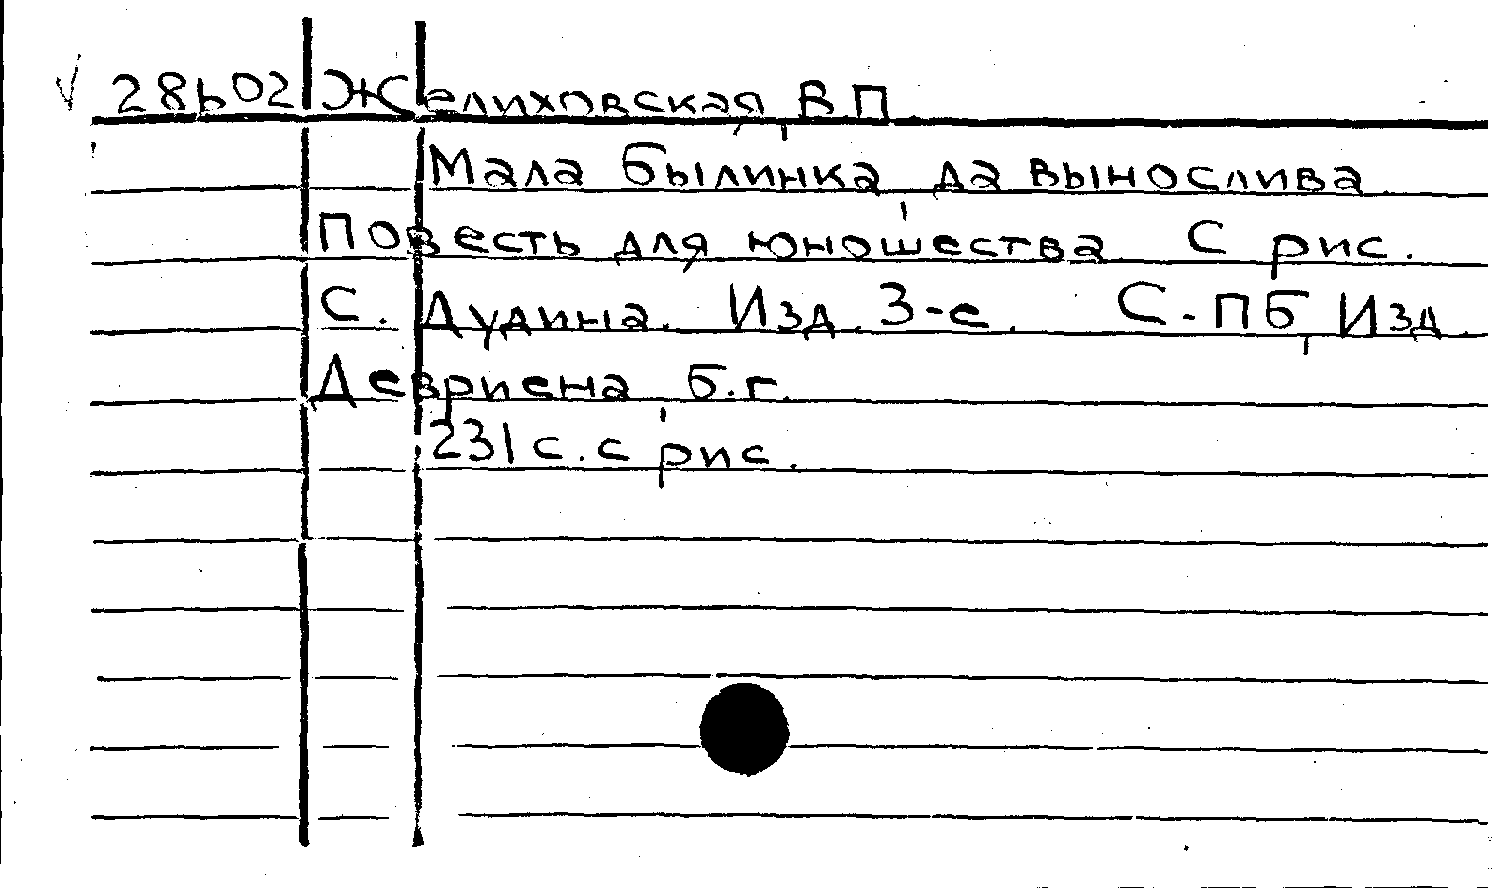 √ 28b02 Желиховская, В.П.
Мала былинка, да вынослива.
Повесть для юношества. С рис.
С. Дудина. Изд. 3-е. С.-ПБ, Изд.
Девриена, б.г.
231 с. с рис.